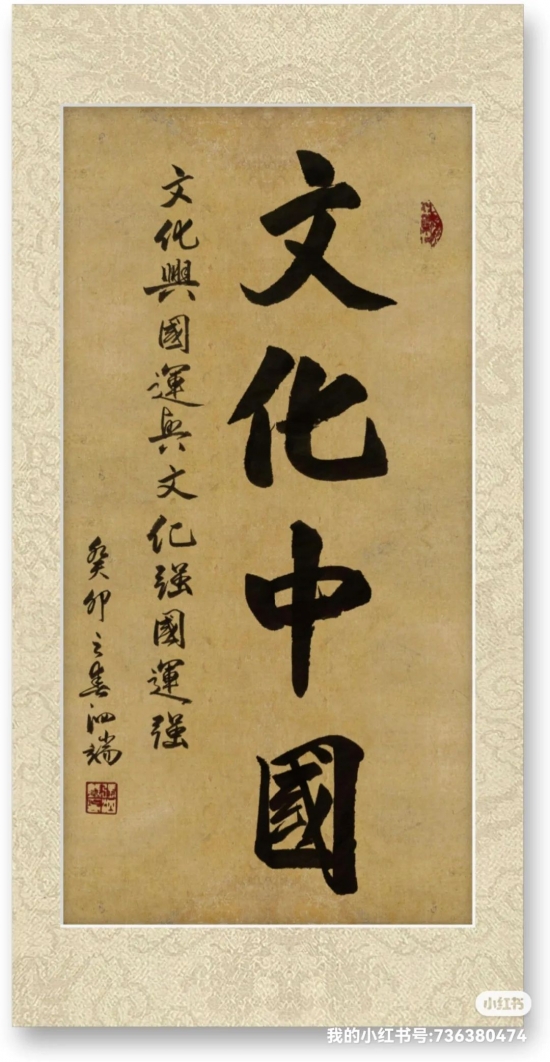 文化中國
文化興國運興文化强國運强
癸卯之春泗端
小红书
我的小红书号:736380474